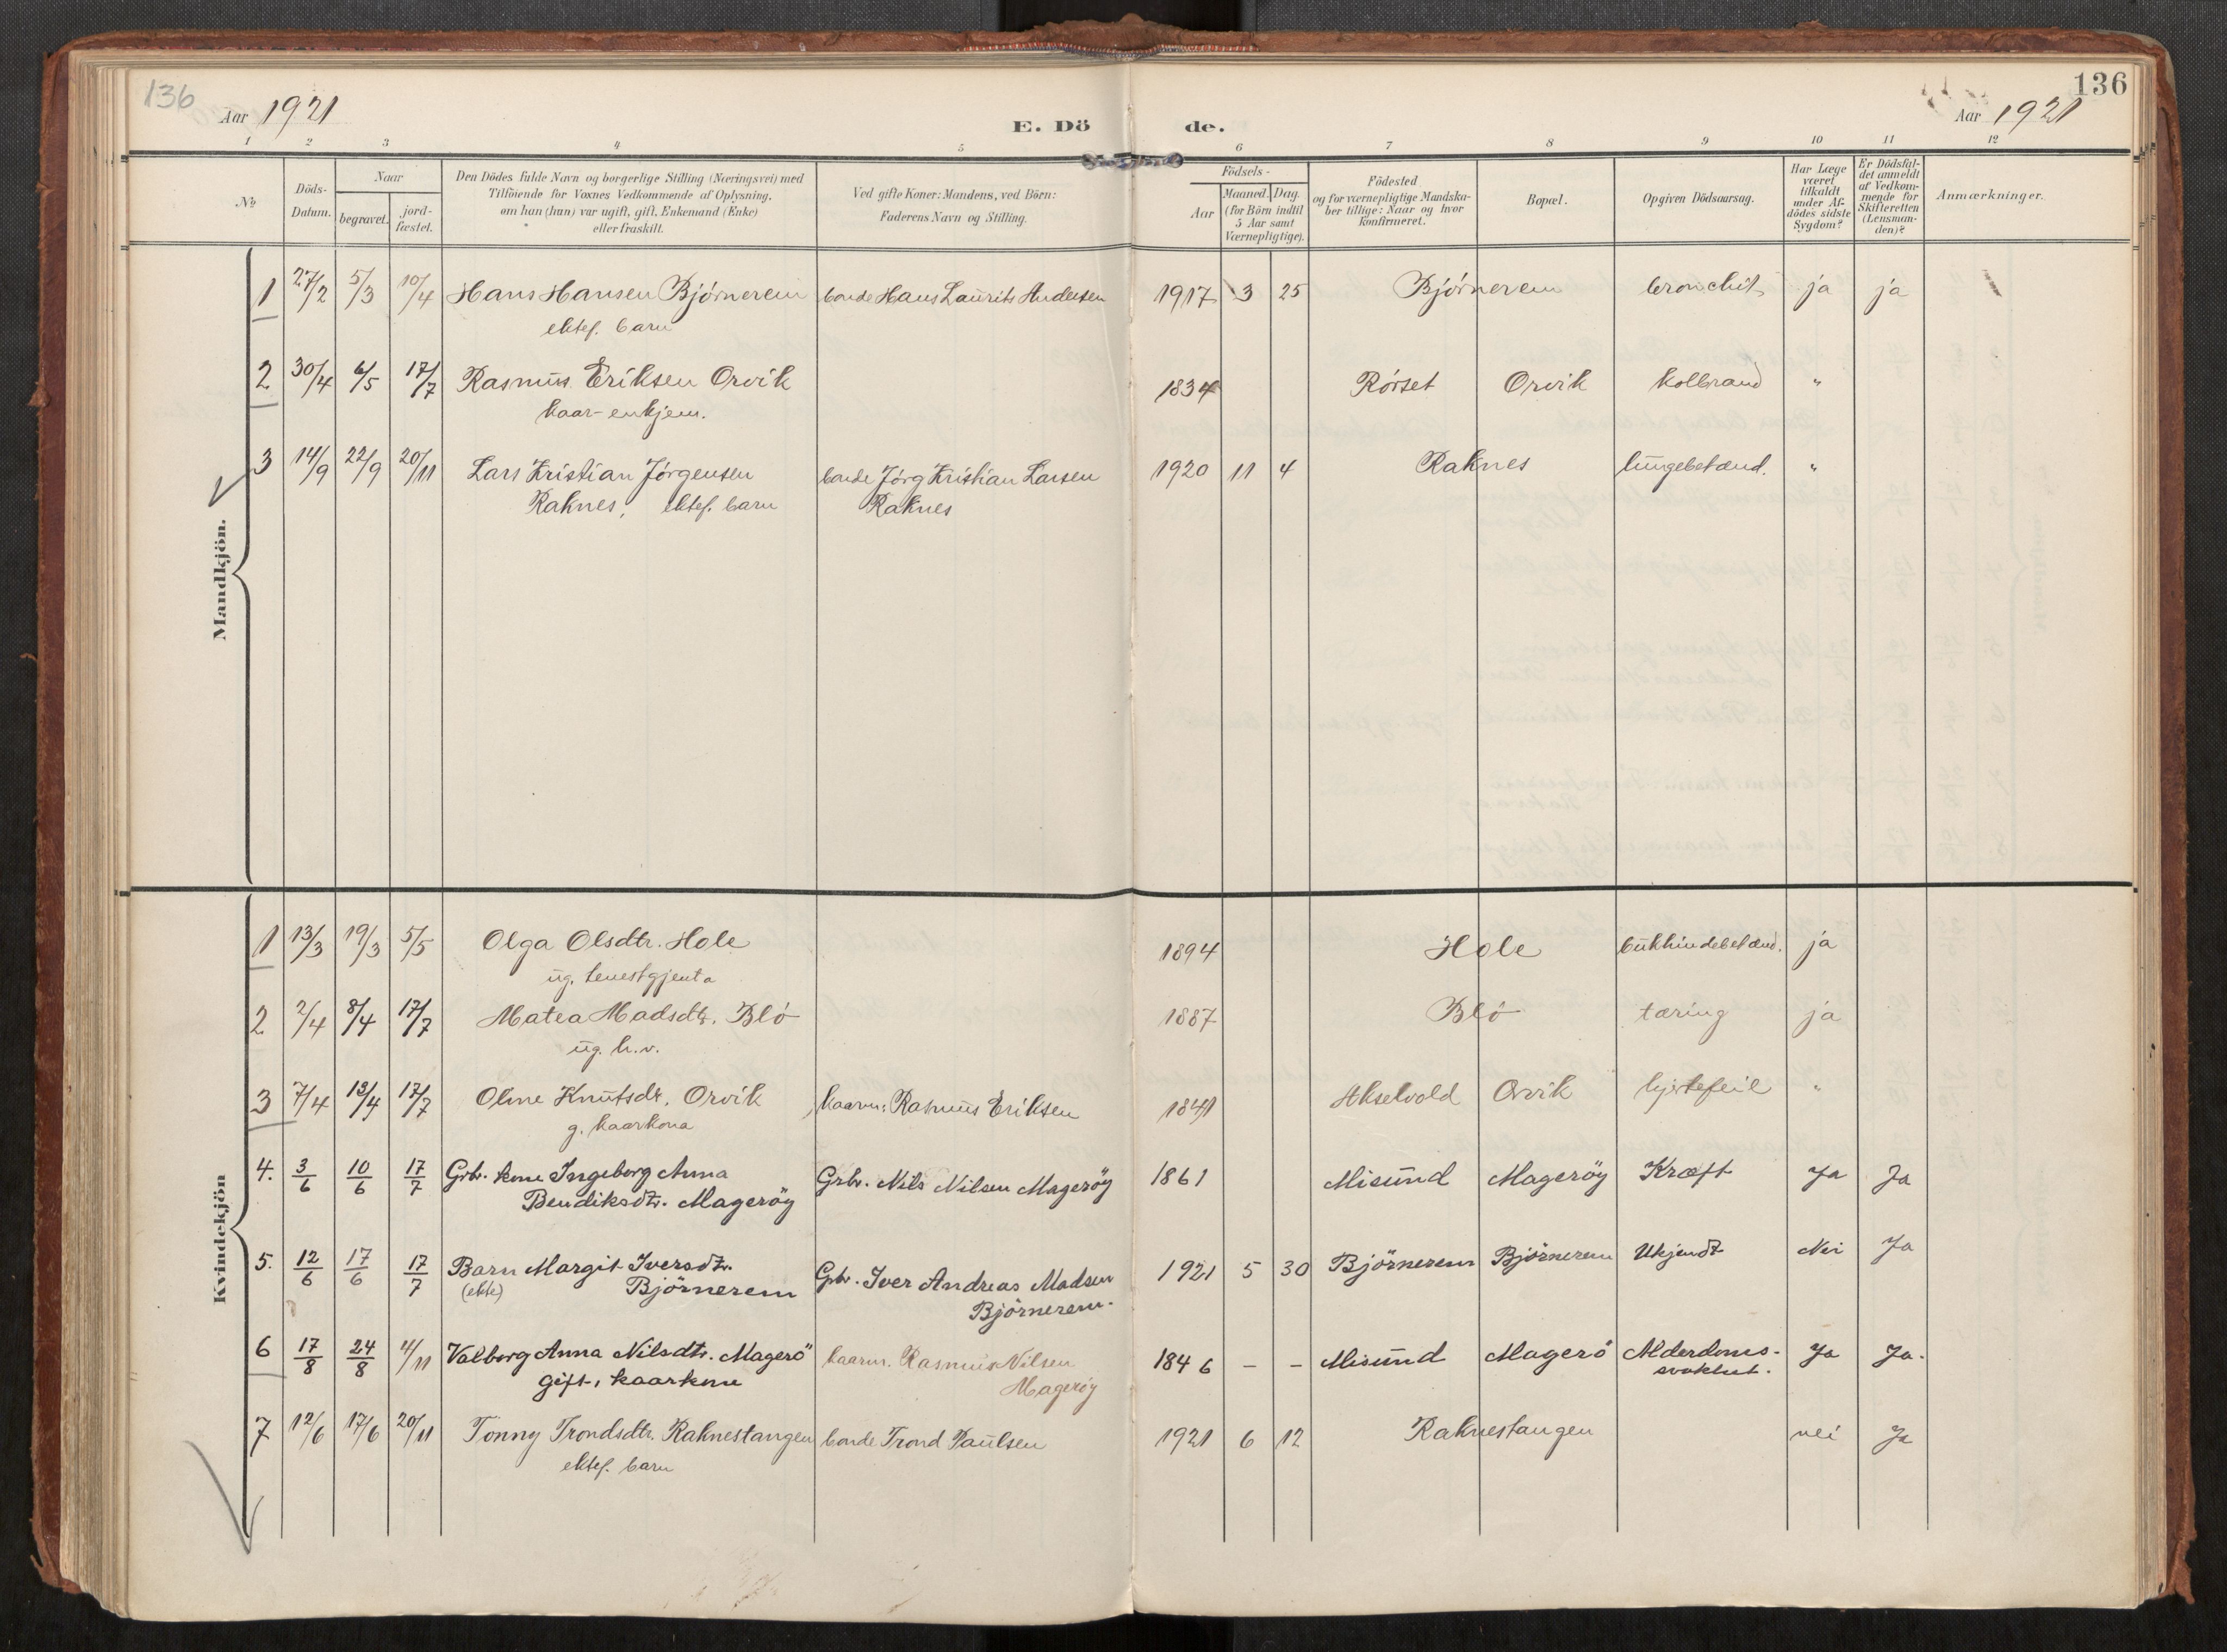 136
136
Aar 1921
E. Dö
de.
Aar 1921
1 2 3 4 5 6 7 8 9 10 11 12
No
Döds-Datum.
Naar
begravet.
jord-fæstet.
Den Dödes fulde Navn og borgerlige Stilling (Næringsvei) med
Tilföiende for Voxnes Vedkommende af Oplysning,
om han (hun) var ugift, gift, Enkemand (Enke)
eller fraskilt.
Ved gifte Koner: Mandens, ved Börn:
Faderens Navn og Stilling.
Födsels-
Aar
Maaned. Dag.
(for Börn indtil
5 Aar samt
Værnepligtige).
Födested
og for værnepligtige Mandska-
ber tillige: Naar og hvor
konfirmeret.
Bopæl.
Opgiven Dödsaarsag.
Har Læge
været
tilkaldt
under Af-
dödes sidste
Sygdom?
Er Dödsfal-
det anmeldt
af Vedkom-
mende for
Skifteretten
(Lensman-
den)?
Anmærkninger.
Mandkjön.
1 27/2 5/3 10/4 Hans Hansen Bjørnerem bonde Hans Laurits Andersen 1917 3 25 Bjørnerem bronchit ja ja
ektef. barn
2 30/4 6/5 17/7 Rasmus Eriksen Orvik 1834 Rørset Orvik kolbrand "
kaar-enkjem.
3 14/9 22/9 20/11 Lars Kristian Jørgensen bonde Jørg Kristian Larsen 1920 11 4 Raknes lungebetænd. "
Raknes, ektef. barn Raknes
Kvindekjön
1 13/3 19/3 5/5 Olga Olsdtr. Hole 1894 Hole bukhindebetænd. ja
ug. tenestgjenta
2 2/4 8/4 17/7 Matea Madsdtr. Blø 1887 Blø tæring ja
ug. h.v.
3 7/4 13/4 17/7 Oline Knutsdtr. Orvik kaarm. Rasmus Eriksen 1841 Akselvold Orvik hjertefeil "
g. kaarkona
4. 3/6 10/6 17/7 Grbr. kone Ingeborg Anna Grbr. Nils Nilsen Magerøy 1861 Misund Magerøy Kræft Ja Ja
Bendiksdtr. Magerøy
5. 12/6 17/6 17/7 Barn Margit Iversdtr. Gbr. Iver Andreas Madsen 1921 5 30 Björnerem Björnerem Ukjendt Nei Ja
(ekte) Björnerem Björnerem.
6 17/8 24/8 11/11 Valborg Anna Nilsdtr. Magerö kaarm. Rasmus Nilsen 1846 - - Misund Magerö Alderdoms- Ja Ja.
gift, kaarkone Magerøy svakhet.
7 12/6 17/6 20/11 Tonny Trondsdtr. Raknestangen bonde Trond Paulsen 1921 6 12 Raknestangen nei Ja
ektef. barn